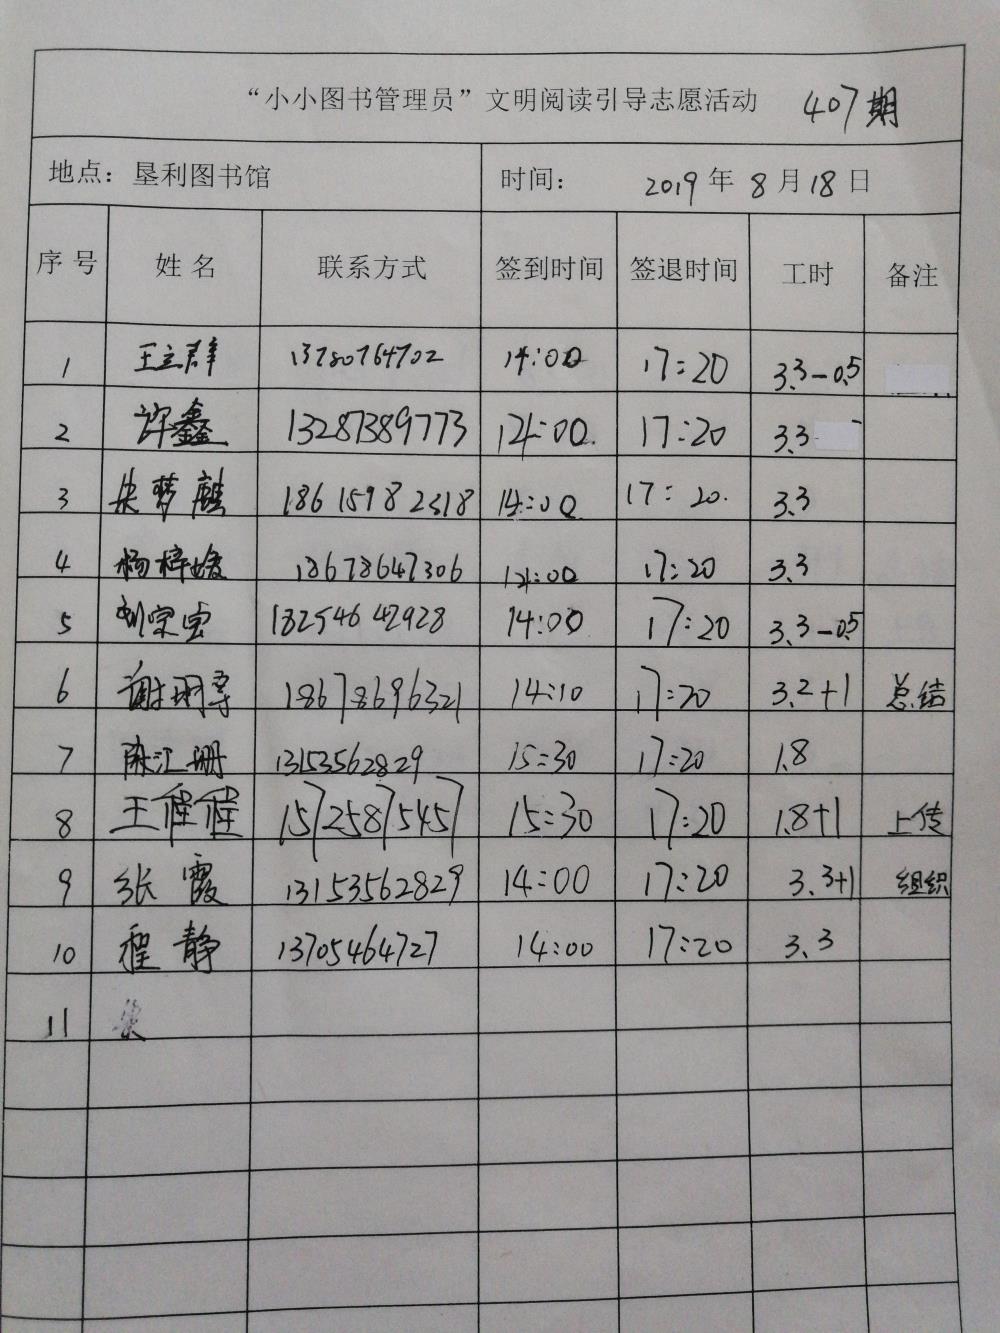 “小小图书管理员”文明阅读引导志愿活动 407期
地点：垦利图书馆 时间： 2019年8月18日
序号 姓名 联系方式 签到时间 签退时间 工时 备注
1 王立群 13780764702 14:00 17:20 3.3-0.5
2 许鑫 13287389773 14:00 17:20 3.3
3 梦麒 18615982318 14:00 17:20 3.3
4 杨梓媛 18678647306 14:00 17:20 3.3
5 刘宗宝 18254642928 14:00 17:20 3.3-0.5
6 谢玥 18678696321 14:10 17:20 3.2+1 总结
7 陈江珊 13153562829 15:30 17:20 1.8
8 王程程 15725875457 15:30 17:20 1.8+1 上传
9 张霞 13153562829 14:00 17:20 3.3+1 组织
10 程静 13705464727 14:00 17:20 3.3
11